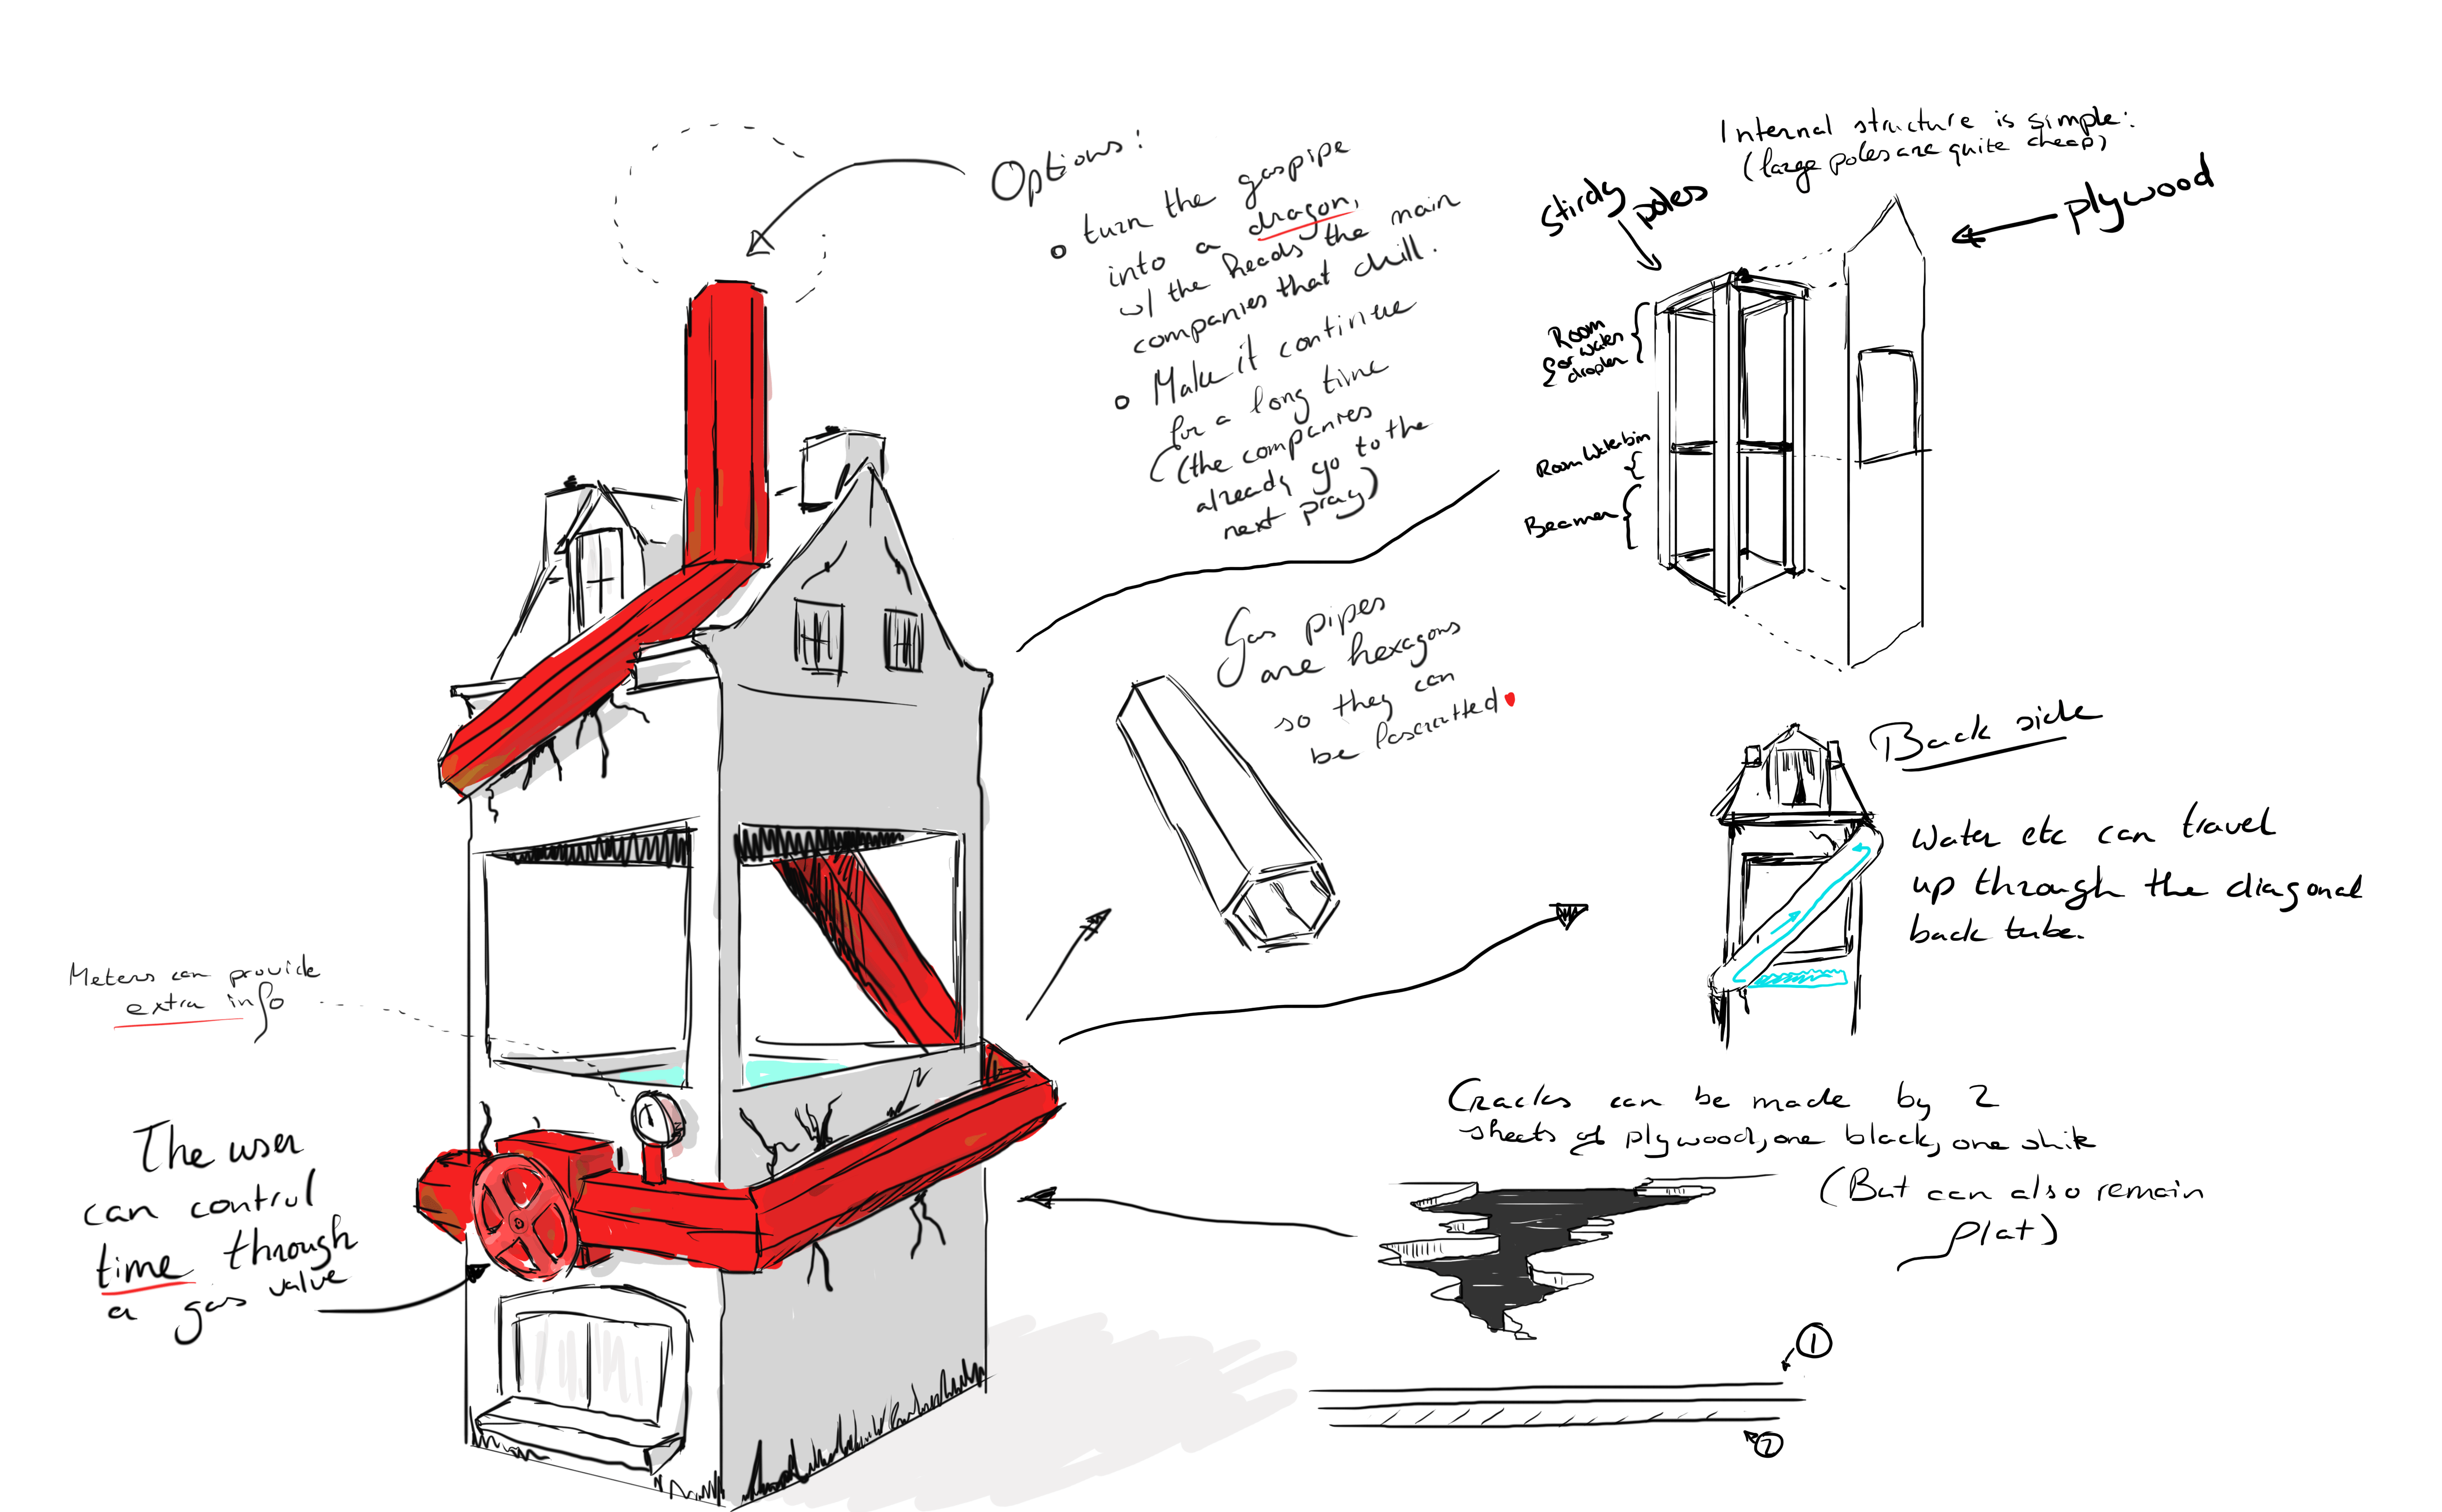 Options:
turn the gaspipe
into a dragon,
w/ the heads the main
companies that drill.
Make it continue
for a long time
(the companies
already go to the
next pray)
Internal structure is simple:
(large poles are quite cheap)
Stirdy poles
plywood
Room
for water
droplen
Room Waterbin
Beamer
Gas pipes
are hexagons
so they can
be lascrutted
Back side
Water etc can travel
up through the diagonal
back tube.
Meters can provide
extra info
The user
can control
time through
a gas valve
Cracks can be made by 2
sheets of plywood, one black, one white
(But can also remain
plat)
1
2